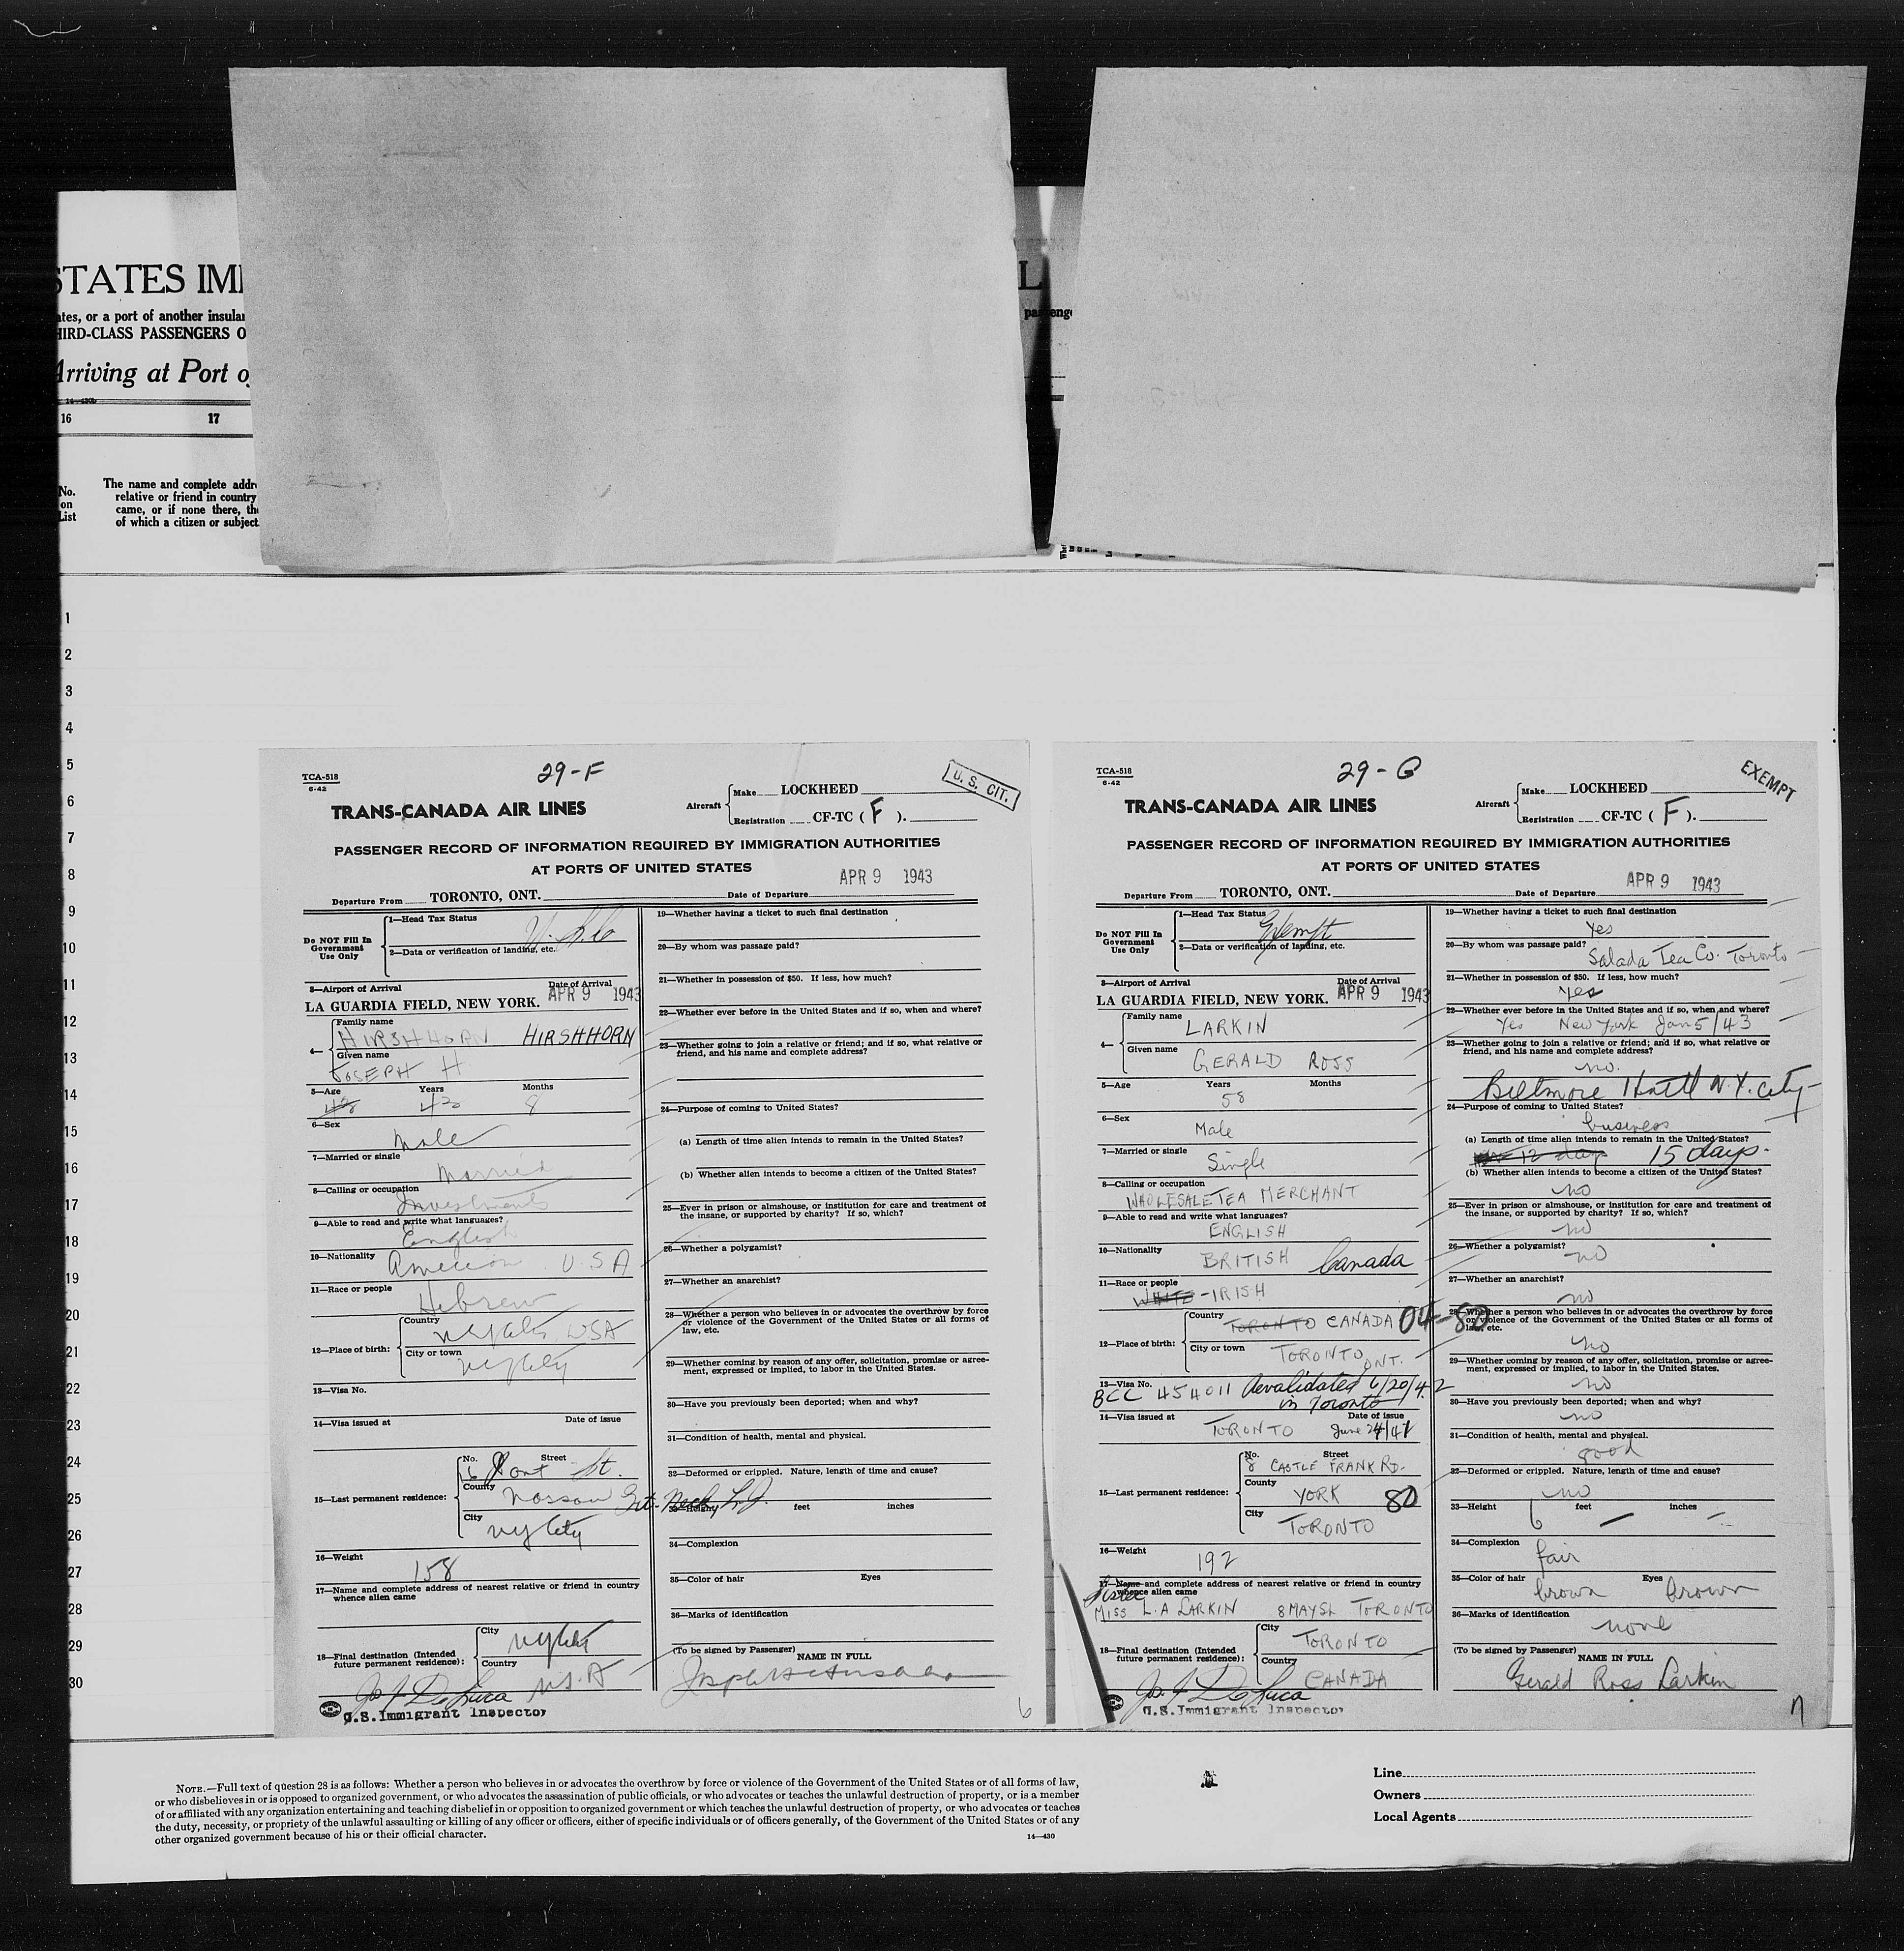 STATES IM
ates, or a port of another insular
HIRD-CLASS PASSENGERS O
Arriving at Port o
14-430b
16 17
No.
on
List
The name and complete addr
relative or friend in country
came, or if none there, th
of which a citizen or subject
L
passeng
1
2
3
4
5
6
7
8
9
10
11
12
13
14
15
16
17
18
19
20
21
22
23
24
25
26
27
28
29
30
TCA-518
6-42
29-F
U. S. CIT.
TRANS-CANADA AIR LINES
Aircraft
Make LOCKHEED
Registration CF-TC ( F ).
PASSENGER RECORD OF INFORMATION REQUIRED BY IMMIGRATION AUTHORITIES
AT PORTS OF UNITED STATES
Departure From TORONTO, ONT. Date of Departure APR 9 1943
Do NOT Fill In
Government
Use Only
1—Head Tax Status
2—Data or verification of landing, etc.
3—Airport of Arrival Date of Arrival
LA GUARDIA FIELD, NEW YORK. APR 9 1943
4— Family name
HIRSHHORN HIRSHHORN
Given name
JOSEPH H
5—Age Years Months
43 8
6—Sex
Male
7—Married or single
Married
8—Calling or occupation
Investments
9—Able to read and write what languages?
English
10—Nationality
American U.S.A
11—Race or people
Hebrew
12—Place of birth:
Country
NY City USA
City or town
NY City
13—Visa No.
14—Visa issued at Date of issue
15—Last permanent residence:
No. Street
16 Pont St.
County
Nassau Grt. Neck L.I.
City
NY City
16—Weight
158
17—Name and complete address of nearest relative or friend in country
whence alien came
18—Final destination (Intended
future permanent residence):
City
NY City
Country
U.S.A
Jos. J. De Luca
U.S. Immigrant Inspector
19—Whether having a ticket to such final destination
20—By whom was passage paid?
21—Whether in possession of $50. If less, how much?
22—Whether ever before in the United States and if so, when and where?
23—Whether going to join a relative or friend; and if so, what relative or
friend, and his name and complete address?
24—Purpose of coming to United States?
(a) Length of time alien intends to remain in the United States?
(b) Whether alien intends to become a citizen of the United States?
25—Ever in prison or almshouse, or institution for care and treatment of
the insane, or supported by charity? If so, which?
26—Whether a polygamist?
27—Whether an anarchist?
28—Whether a person who believes in or advocates the overthrow by force
or violence of the Government of the United States or all forms of
law, etc.
29—Whether coming by reason of any offer, solicitation, promise or agree-
ment, expressed or implied, to labor in the United States.
30—Have you previously been deported; when and why?
31—Condition of health, mental and physical.
32—Deformed or crippled. Nature, length of time and cause?
33—Height feet inches
34—Complexion
35—Color of hair Eyes
36—Marks of identification
(To be signed by Passenger)
NAME IN FULL
6
TCA-518
6-42
29-G
EXEMPT
TRANS-CANADA AIR LINES
Aircraft
Make LOCKHEED
Registration CF-TC ( F ).
PASSENGER RECORD OF INFORMATION REQUIRED BY IMMIGRATION AUTHORITIES
AT PORTS OF UNITED STATES
Departure From TORONTO, ONT. Date of Departure APR 9 1943
Do NOT Fill In
Government
Use Only
1—Head Tax Status
Exempt
2—Data or verification of landing, etc.
3—Airport of Arrival Date of Arrival
LA GUARDIA FIELD, NEW YORK. APR 9 1943
4— Family name
LARKIN
Given name
GERALD ROSS
5—Age Years Months
58
6—Sex
Male
7—Married or single
Single
8—Calling or occupation
WHOLESALE TEA MERCHANT
9—Able to read and write what languages?
ENGLISH
10—Nationality
BRITISH Canada
11—Race or people
WHITE -IRISH
12—Place of birth:
Country
TORONTO CANADA 04-80
City or town
TORONTO, ONT.
13—Visa No.
BCC 454011 Revalidated 6/20/42
in Toronto
14—Visa issued at Date of issue
TORONTO June 24/41
15—Last permanent residence:
No. Street
8 CASTLE FRANK RD.
County
YORK 80
City
TORONTO
16—Weight
192
17—Name and complete address of nearest relative or friend in country
whence alien came
Sister
MISS L.A LARKIN 8 MAY St TORONTO
18—Final destination (Intended
future permanent residence):
City
TORONTO
Country
CANADA
Jos. J. De Luca
U.S. Immigrant Inspector
19—Whether having a ticket to such final destination
Yes
20—By whom was passage paid?
Salada Tea Co. Toronto
21—Whether in possession of $50. If less, how much?
Yes
22—Whether ever before in the United States and if so, when and where?
Yes New York Jan 5/43
23—Whether going to join a relative or friend; and if so, what relative or
friend, and his name and complete address?
no.
Biltmore Hotel N.Y. City
24—Purpose of coming to United States?
business
(a) Length of time alien intends to remain in the United States?
12 days 15 days.
(b) Whether alien intends to become a citizen of the United States?
no
25—Ever in prison or almshouse, or institution for care and treatment of
the insane, or supported by charity? If so, which?
no
26—Whether a polygamist?
no
27—Whether an anarchist?
no
28—Whether a person who believes in or advocates the overthrow by force
or violence of the Government of the United States or all forms of
law, etc.
no
29—Whether coming by reason of any offer, solicitation, promise or agree-
ment, expressed or implied, to labor in the United States.
no
30—Have you previously been deported; when and why?
no
31—Condition of health, mental and physical.
good
32—Deformed or crippled. Nature, length of time and cause?
no
33—Height feet inches
6 — -
34—Complexion
fair
35—Color of hair Eyes
brown brown
36—Marks of identification
none
(To be signed by Passenger)
NAME IN FULL
Gerald Ross Larkin
7
NOTE.—Full text of question 28 is as follows: Whether a person who believes in or advocates the overthrow by force or violence of the Government of the United States or of all forms of law,
or who disbelieves in or is opposed to organized government, or who advocates the assassination of public officials, or who advocates or teaches the unlawful destruction of property, or is a member
of or affiliated with any organization entertaining and teaching disbelief in or opposition to organized government or which teaches the unlawful destruction of property, or who advocates or teaches
the duty, necessity, or propriety of the unlawful assaulting or killing of any officer or officers, either of specific individuals or of officers generally, of the Government of the United States or of any
other organized government because of his or their official character.
14—430
Line
Owners
Local Agents